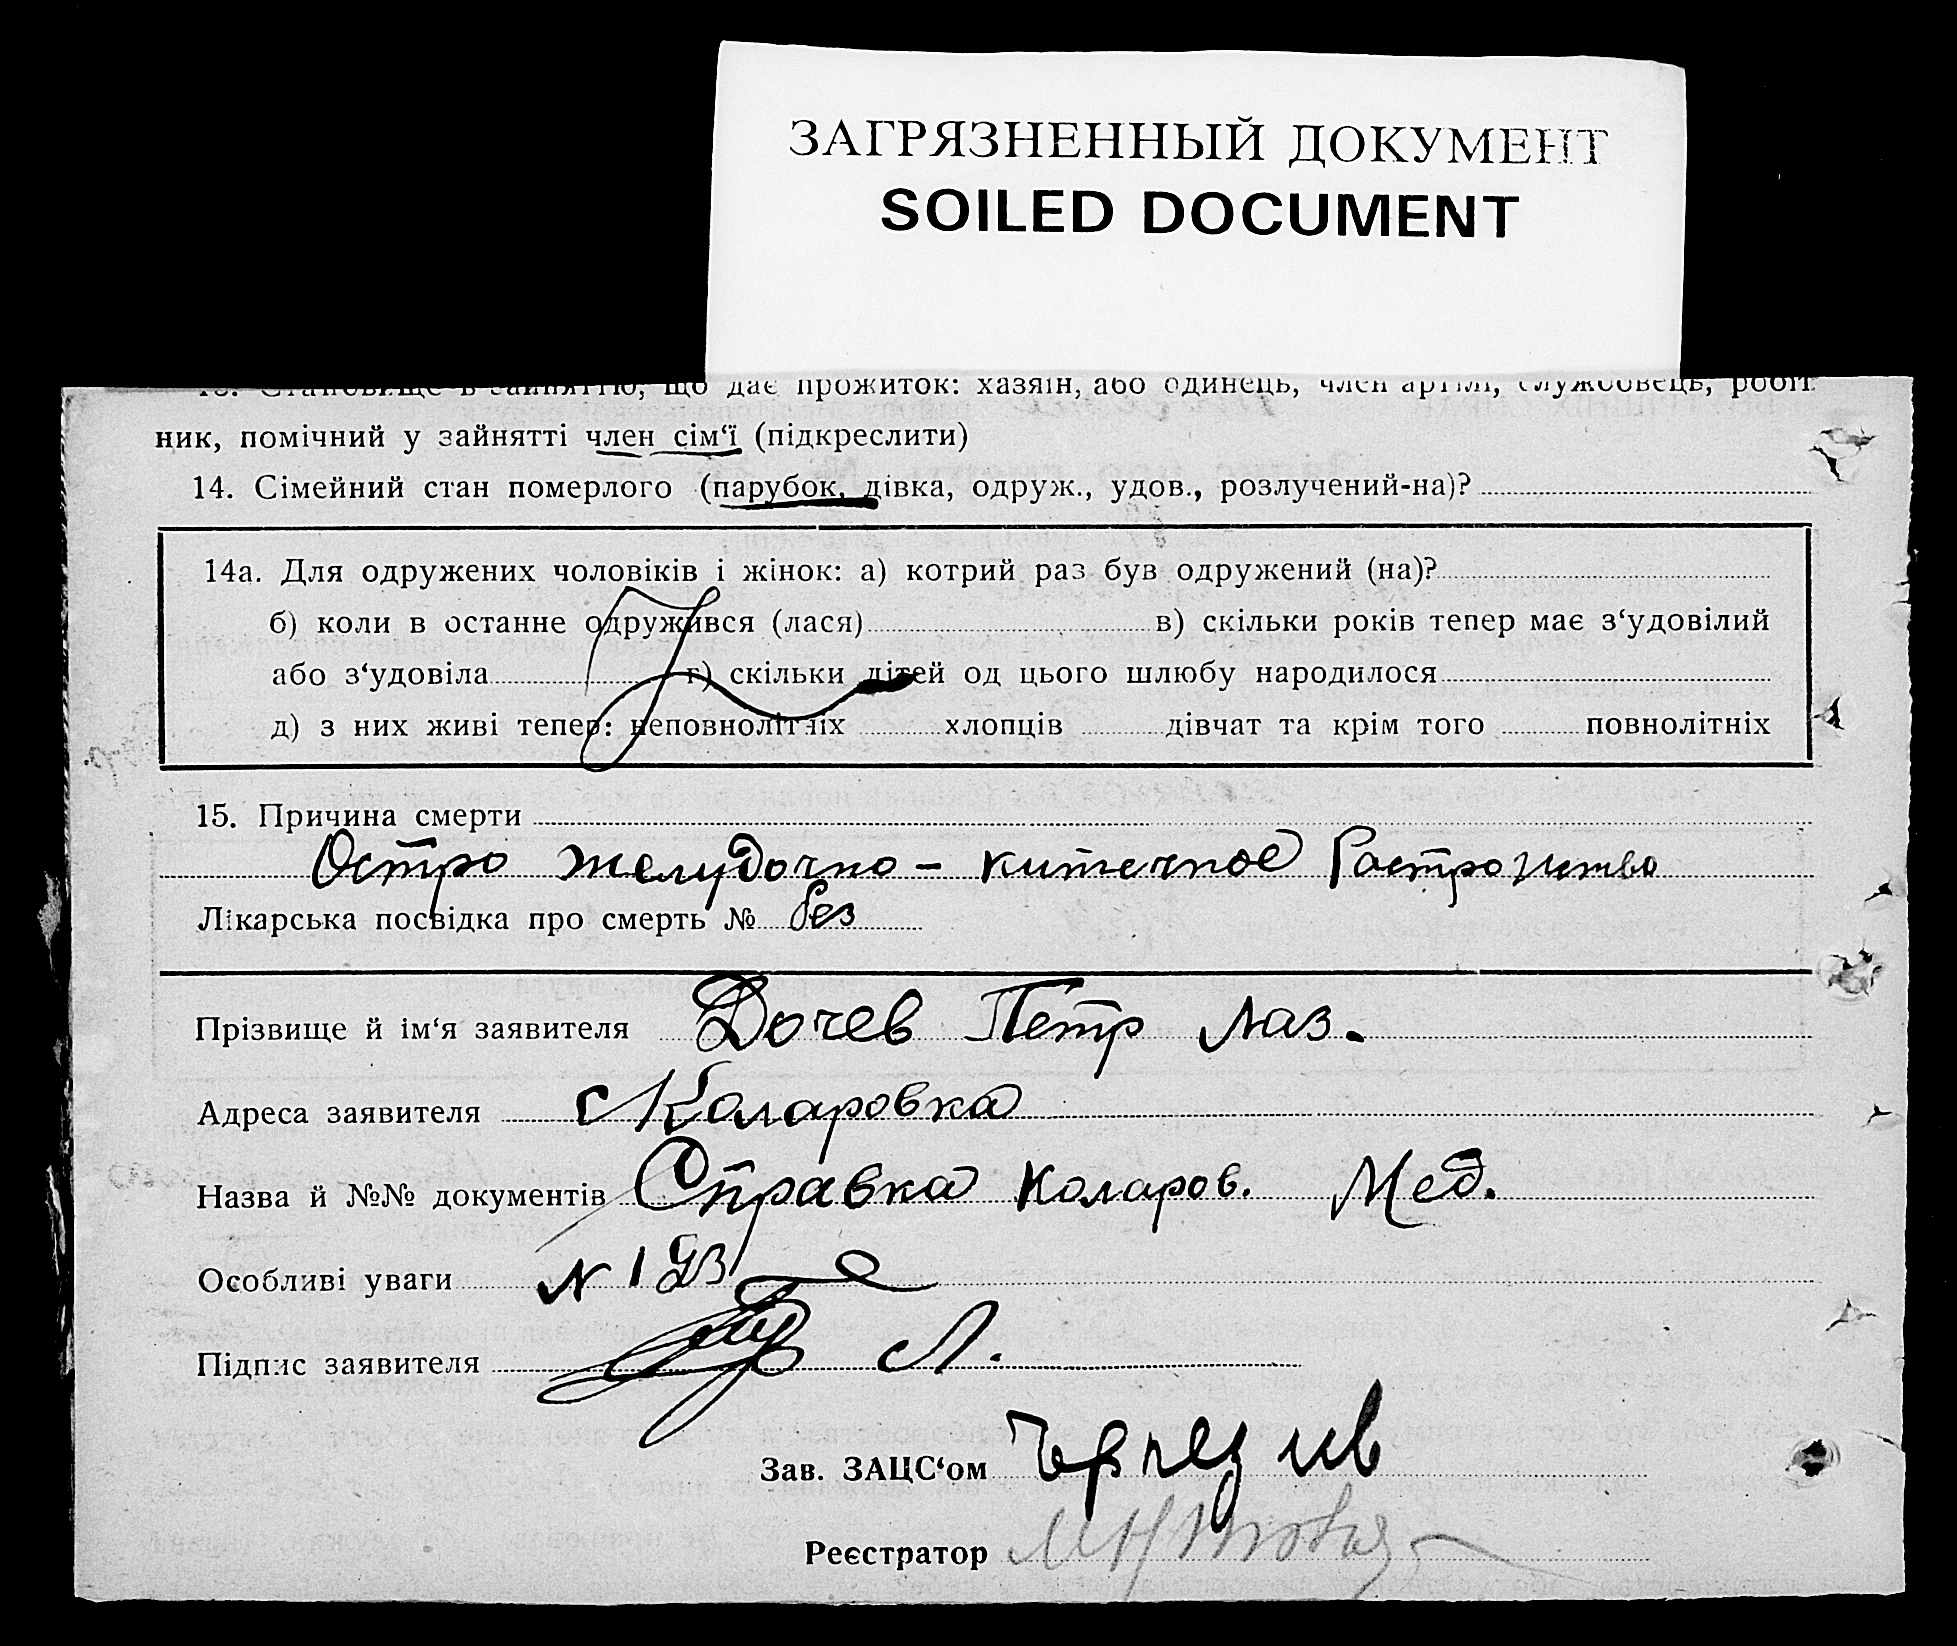 ЗАГРЯЗНЕННЫЙ ДОКУМЕНТ
SOILED DOCUMENT
13. Становище в зайняттю, що дає прожиток: хазяін, або одинець, член артілі, службовець, робіт
ник, помічний у зайнятті член сім‘ї (підкреслити)
14. Сімейний стан померлого (парубок, дівка, одруж., удов., розлучений-на)?
14а. Для одружених чоловіків і жінок: а) котрий раз був одружений (на)?
б) коли в останне одружився (лася) в) скільки років тепер має з‘удовілий
або з‘удовіла г) скільки дітей од цього шлюбу народилося
д) з них живі тепер: неповнолітніх хлопців дівчат та крім того повнолітніх
15. Причина смерти
Остро желудочно - кишечное
Лікарська посвідка про смерть № без
Прізвище й ім‘я заявителя Дочев Петр Лаз.
Адреса заявителя с Коларовка
Назва й №№ документів Справка Коларов. Мед.
Особливі уваги N 193
Підпис заявителя Л.
Зав. ЗАЦС‘ом
Реєстратор